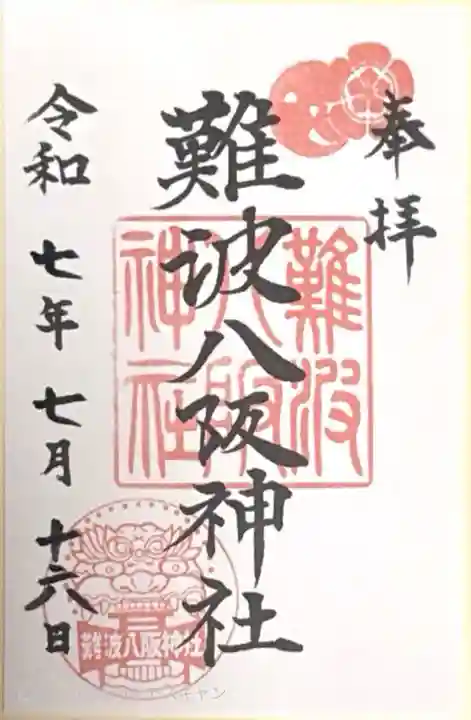 奉拝
難波八阪神社
難波
八阪
神社
令和 七年 七月 十六日
難波八阪神社